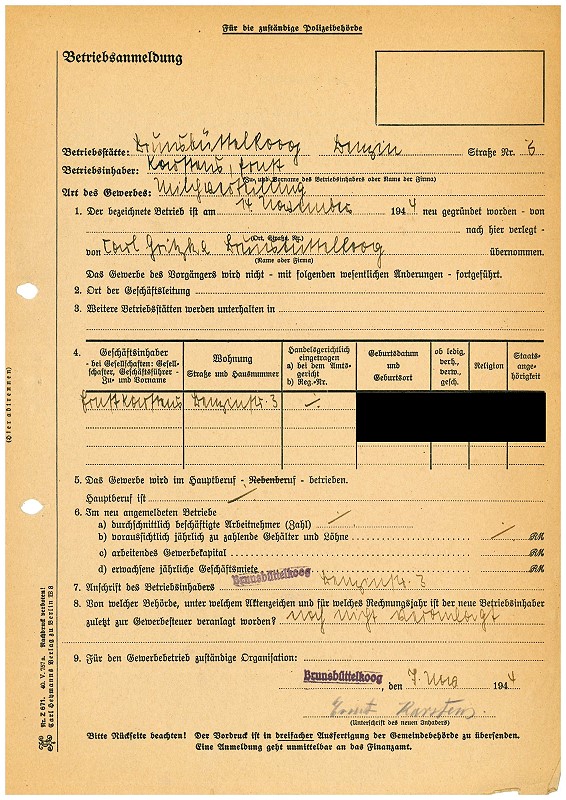 Für die zuständige Polizeibehörde
Betriebsanmeldung
Betriebsstätte: Brunsbüttelkoog Straße Nr. 3
Betriebsinhaber: Karstens, Ernst
(Zu- und Vorname des Betriebsinhabers oder Name der Firma)
Art des Gewerbes: Milchverteilung
1. Der bezeichnete Betrieb ist am 14 November 1944 neu gegründet worden - von
(Ort, Straße, Nr.) nach hier verlegt -
von Carl Gritzka Brunsbüttelkoog übernommen.
(Name oder Firma)
Das Gewerbe des Vorgängers wird nicht - mit folgenden wesentlichen Änderungen - fortgeführt.
2. Ort der Geschäftsleitung
3. Weitere Betriebsstätten werden unterhalten in
4. Geschäftsinhaber
- bei Gesellschaften: Gesell-
schafter, Geschäftsführer -
Zu- und Vorname
Wohnung
Straße und Hausnummer
Handelsgerichtlich
eingetragen
a) bei dem Amts-
gericht
b) Reg.-Nr.
Geburtsdatum
und
Geburtsort
ob ledig,
verh.,
verw.,
gesch.
Religion
Staats-
ange-
hörigkeit
Ernst Karstens
5. Das Gewerbe wird im Hauptberuf - Nebenberuf - betrieben.
Hauptberuf ist
6. Im neu angemeldeten Betriebe
a) durchschnittlich beschäftigte Arbeitnehmer (Zahl)
b) voraussichtlich jährlich zu zahlende Gehälter und Löhne RM.
c) arbeitendes Gewerbekapital RM.
d) erwachsene jährliche Geschäftsmiete RM.
7. Anschrift des Betriebsinhabers Brunsbüttelkoog
8. Von welcher Behörde, unter welchem Aktenzeichen und für welches Rechnungsjahr ist der neue Betriebsinhaber
zuletzt zur Gewerbesteuer veranlagt worden? noch nicht veranlagt
9. Für den Gewerbebetrieb zuständige Organisation:
Brunsbüttelkoog, den 7. Nov. 1944
Ernst Karstens
(Unterschrift des neuen Inhabers)
Bitte Rückseite beachten! Der Vordruck ist in dreifacher Ausfertigung der Gemeindebehörde zu übersenden.
Eine Anmeldung geht unmittelbar an das Finanzamt.
(Hier abtrennen)
Nachdruck verboten!
Carl Heymanns Verlag zu Berlin W 8